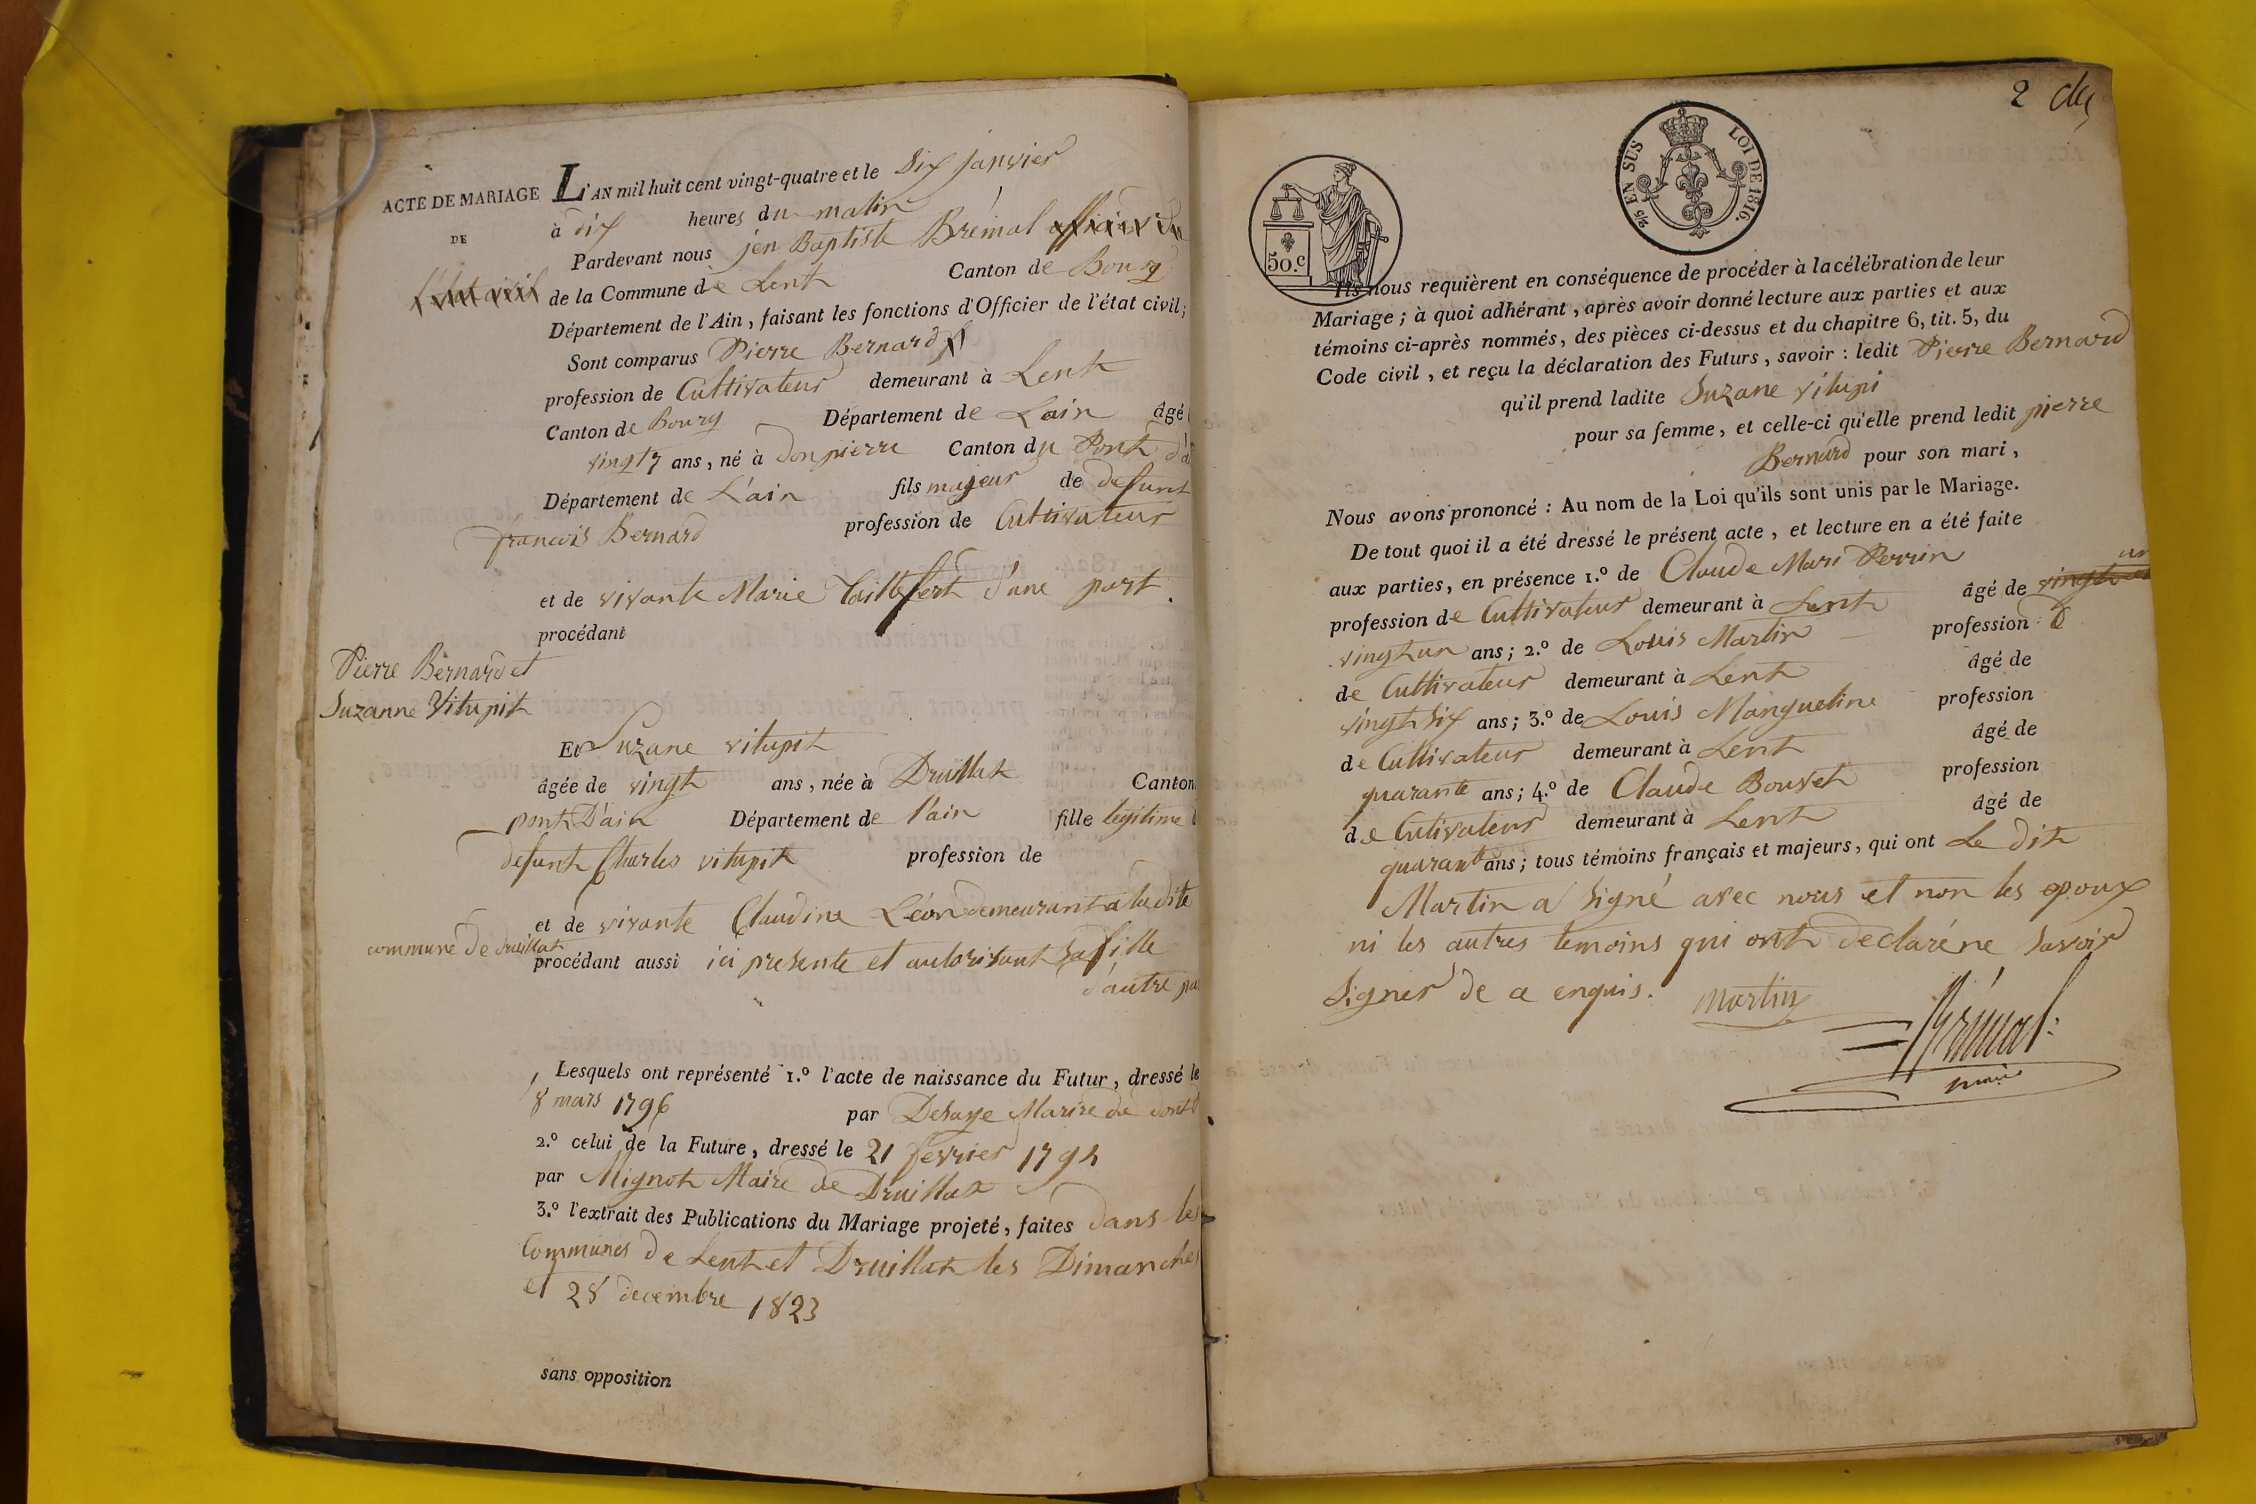 ACTE DE MARIAGE L'AN mil huit cent vingt-quatre et le dix janvier
DE
à dix heures du matin
Pardevant nous jen Baptiste Brémal
de la Commune de Lent Canton de Bourg
Département de l'Ain, faisant les fonctions d'Officier de l'état civil;
Sont comparus Pierre Bernard
profession de Cultivateur demeurant à Lent
Canton de Bourg Département de Lain âgé
vingt 7 ans, né à donpierre Canton du Pont d'a
Département de L'ain fils majeur de defunt
francois Bernard profession de Cultivateur
et de vivante Marie Taillefert d'une part.
procédant
Pierre Bernard et
Suzanne Vitupit
Et Suzane vitupit
âgée de vingt ans, née à Druillat Canton
pont D'ain Département de l'ain fille legitime
defunt Charles vitupit profession de
et de vivante Claudine Léon demeurant a ladite
commune de druillat
procédant aussi ici presente et autorisant sa fille
d'autre pa
Lesquels ont représenté 1.º l'acte de naissance du Futur, dressé le
8 mars 1796 par Desaye Marire de dont
2.º celui de la Future, dressé le 21 fevrier
par Mignot Maire de Druillat
3.º l'extrait des Publications du Mariage projeté, faites dans les
Communes de Lent et Druillat les Dimanches
et 28 decembre 1823
sans opposition
2
50.c
2/5 EN SUS LOI DE 1816.
Ils nous requièrent en conséquence de procéder à la célébration de leur
Mariage; à quoi adhérant, après avoir donné lecture aux parties et aux
témoins ci-après nommés, des pièces ci-dessus et du chapitre 6, tit. 5, du
Code civil, et reçu la déclaration des Futurs, savoir: ledit Pierre Bernard
qu'il prend ladite Suzane vitupi
pour sa femme, et celle-ci qu'elle prend ledit pierre
Bernard pour son mari,
Nous avons prononcé: Au nom de la Loi qu'ils sont unis par le Mariage.
De tout quoi il a été dressé le présent acte, et lecture en a été faite
aux parties, en présence 1.º de Claude Mari Perrin
profession de Cultivateur demeurant à Lent âgé de
vingt un ans; 2.º de Louis Martin profession
de Cultivateur demeurant à Lent âgé de
vingt six ans; 3.º de Louis Mangueline profession
de Cultivateur demeurant à Lent âgé de
quarante ans; 4.º de Claude Bouvet profession
de Cutivateur demeurant à Lent âgé de
quarant ans; tous témoins français et majeurs, qui ont Le dit
Martin a signé avec nous et non les epoux
ni les autres temoins qui ont declaré ne savoir
signer de ce enquis. martin
Brémal
maire